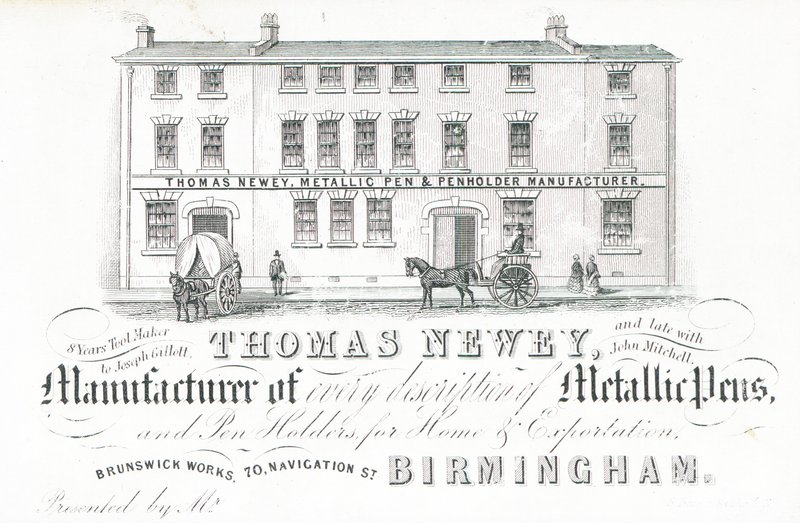 THOMAS NEWEY, METALLIC PEN & PENHOLDER MANUFACTURER.
8 Years Tool Maker
to Joseph Gillott,
THOMAS NEWEY,
and late with
John Mitchell.
Manufacturer of every description of Metallic Pens,
and Pen Holders, for Home & Exportation,
BRUNSWICK WORKS, 70, NAVIGATION ST BIRMINGHAM.
Presented by Mr